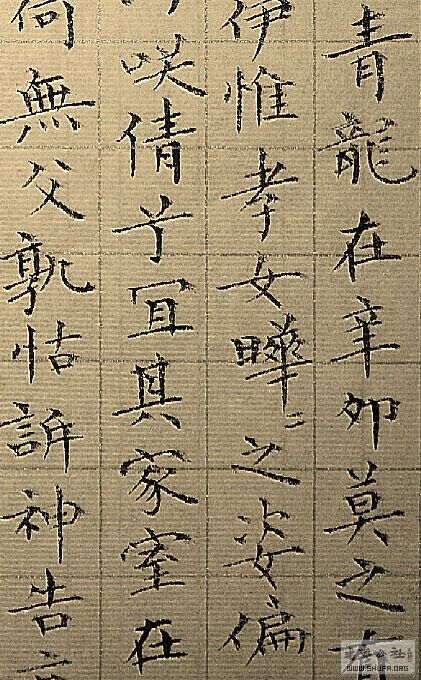 青龍在辛卯莫之有
伊惟孝女曄〻之姿偏
咲倩兮冝其家室在
何無父孰怙訴神告
WWW.SHUFA.ORG